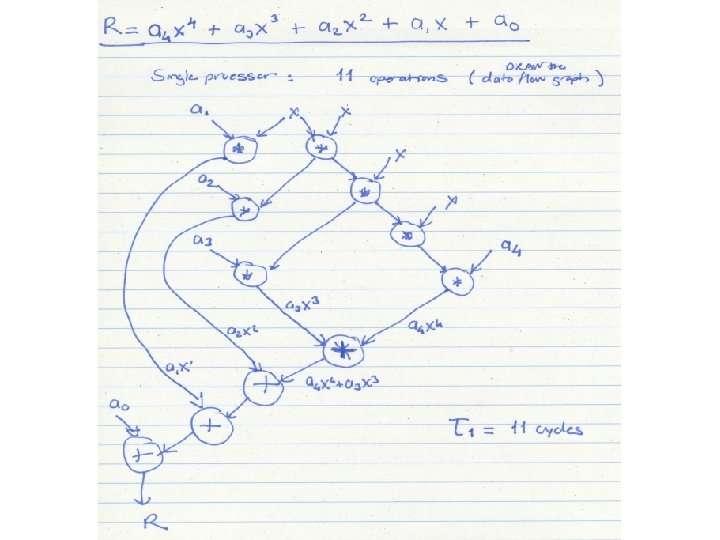 R = a₄x⁴ + a₃x³ + a₂x² + a₁x + a₀
Single processor : 11 operations (data flow graph)
a₁ x x
* *
a₂ x
* *
x
a₃ *
a₄
* *
a₃x³
a₂x² a₄x⁴
+
a₁x¹
+ a₄x⁴+a₃x³
a₀
+
τ₁ = 11 cycles
+
R